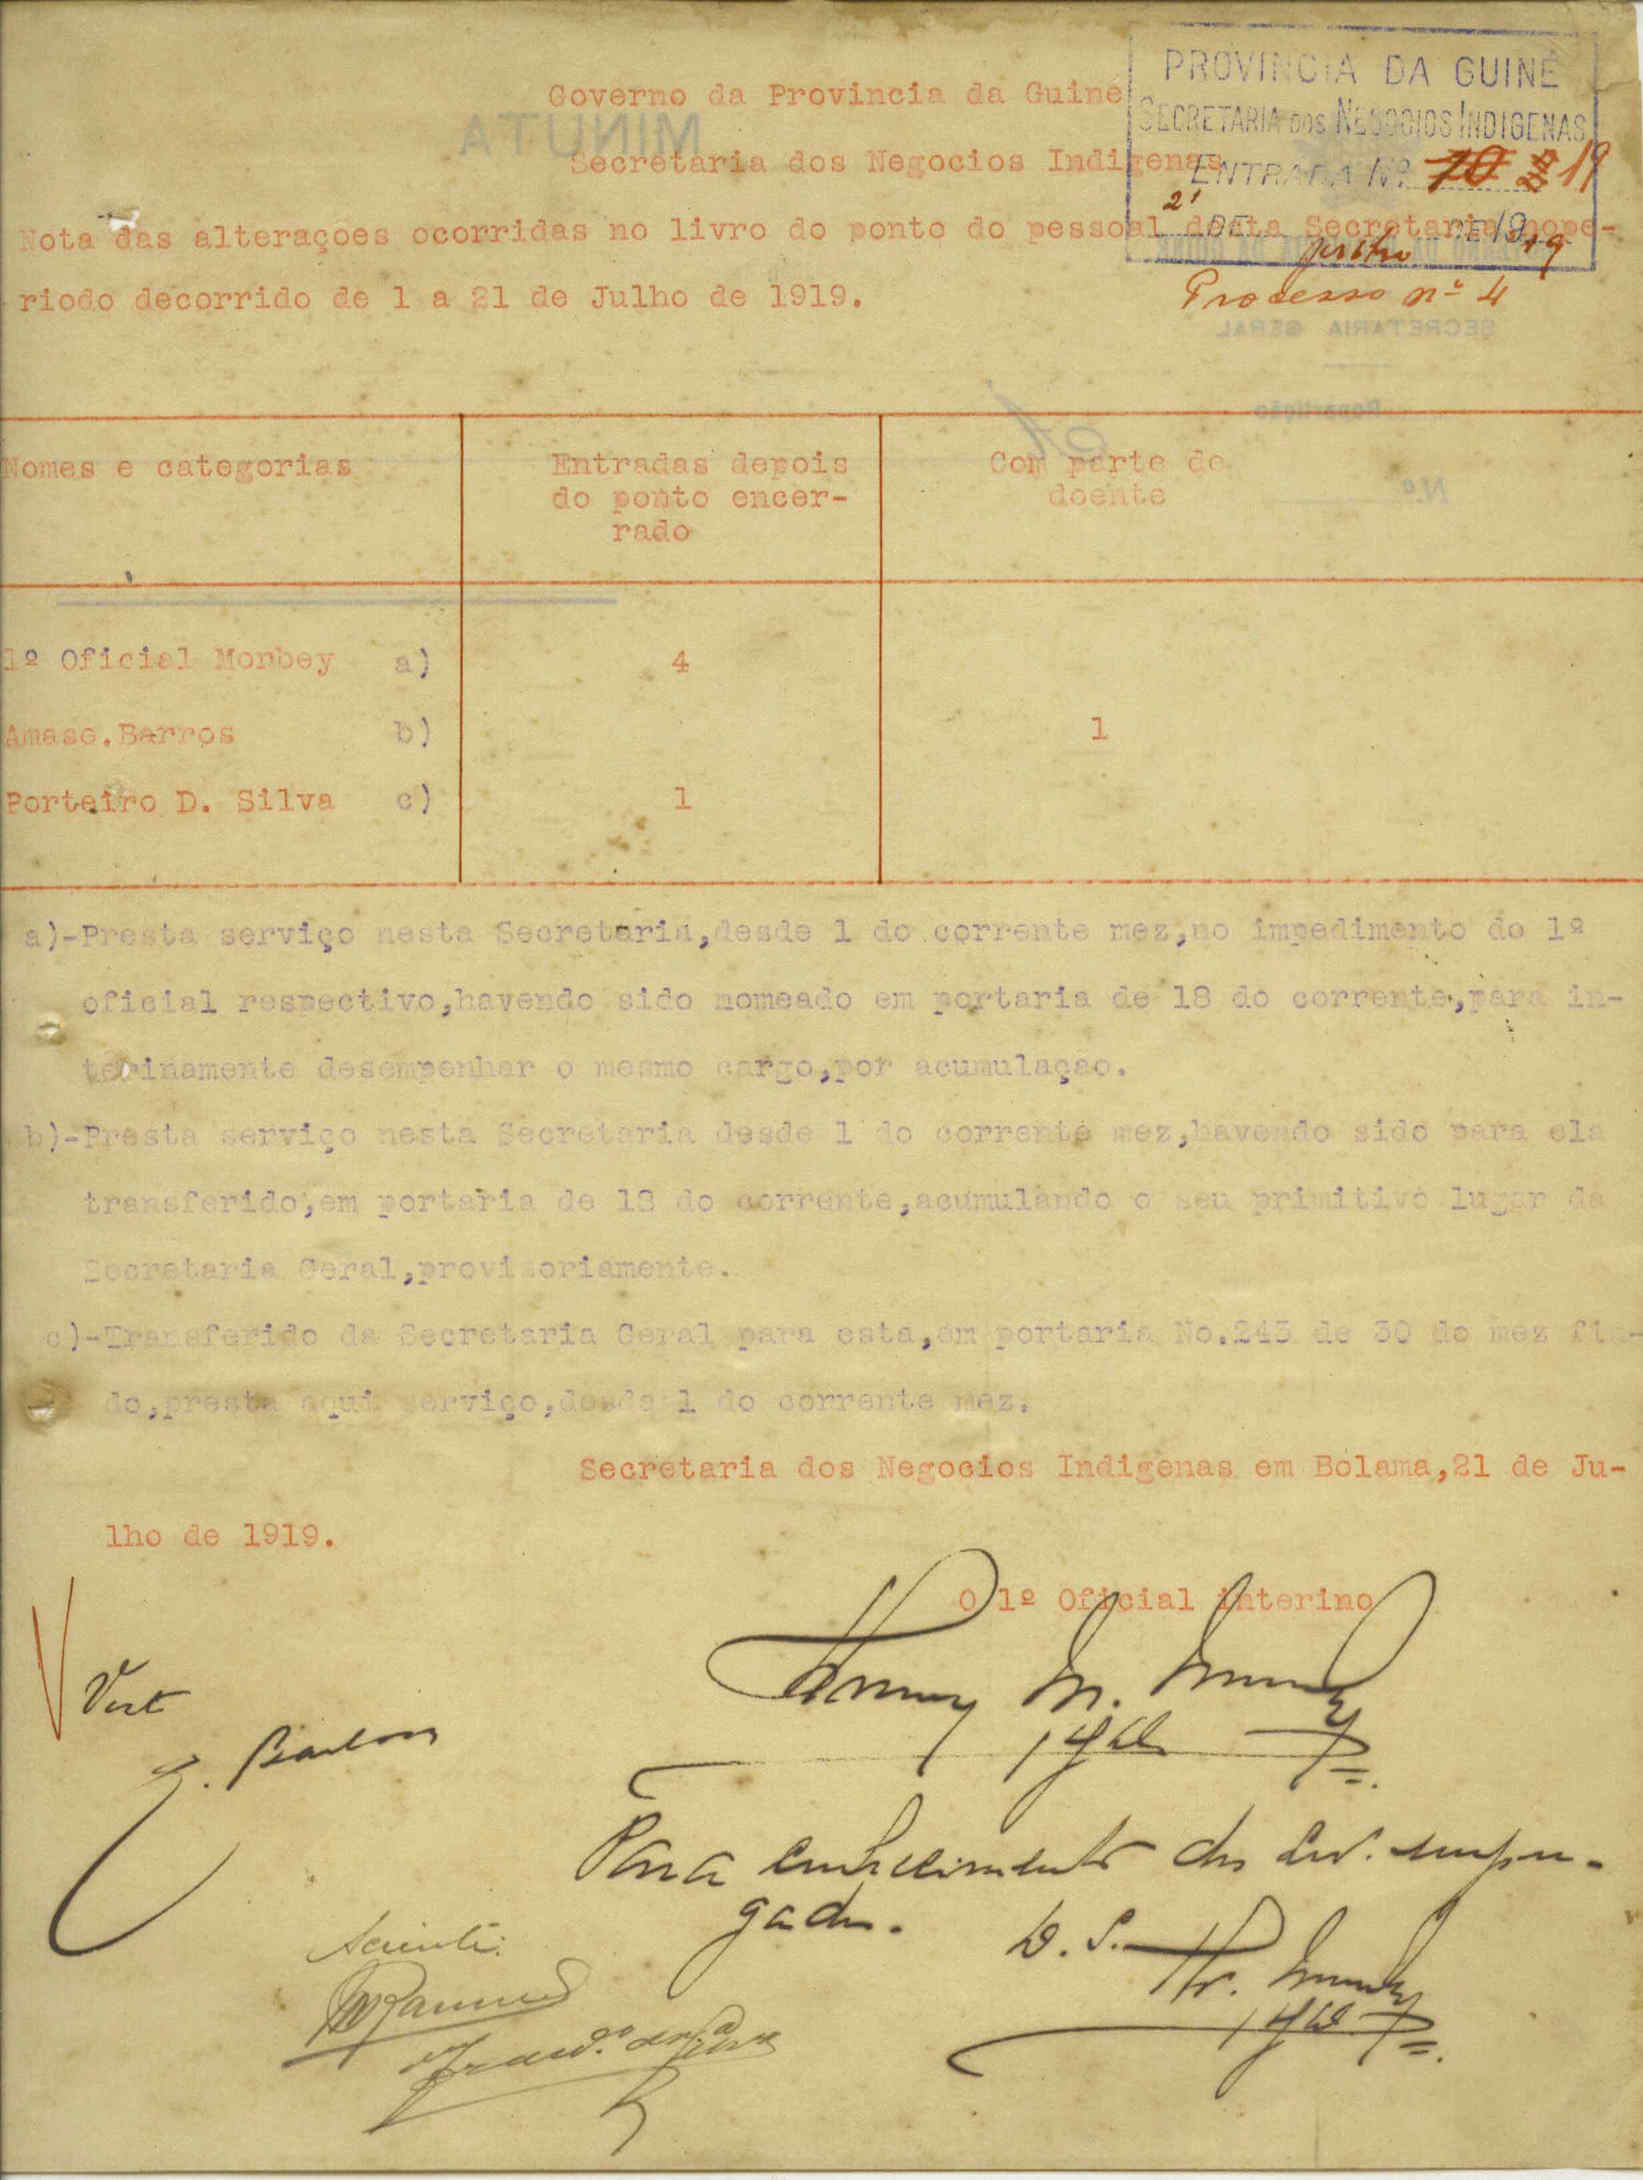 PROVINCIA DA GUINÉ
SECRETARIA DOS NEGOCIOS INDIGENAS
ENTRADA Nº 70 19
21 DE DE 1919
Processo nº 4
MINUTA
SECRETARIA GERAL
Repartição
N.º
Governo da Provincia da Guiné
Secretaria dos Negocios Indigenas
Nota das alterações ocorridas no livro do ponto do pessoal desta Secretaria, nope-
riodo decorrido de 1 a 21 de Julho de 1919.
Nomes e categorias
Entradas depois
do ponto encer-
rado
Com parte de
doente
1º Oficial Monbey a) 4
Amase.Barros b) 1
Porteiro D. Silva c) 1
a)-Presta serviço nesta Secretaria,desde 1 do corrente mez,no impedimento do 1º
oficial respectivo,havendo sido nomeado em portaria de 18 do corrente,para in-
terinamente desempenhar o mesmo cargo,por acumulaçao.
b)-Presta serviço nesta Secretaria desde 1 do corrente mez,havendo sido para ela
transferido,em portaria de 18 do corrente,acumulando o seu primitivo lugar da
Secretaria Geral,provisoriamente.
c)-Transferido da Secretaria Geral para esta,em portaria No.243 de 30 do mez fin-
do,presta aqui serviço,desde 1 do corrente mez.
Secretaria dos Negocios Indigenas em Bolama,21 de Ju-
lho de 1919.
O 1º Oficial interino
1º Of.
Para conhecimento dos empre-
gados.
Sciente: